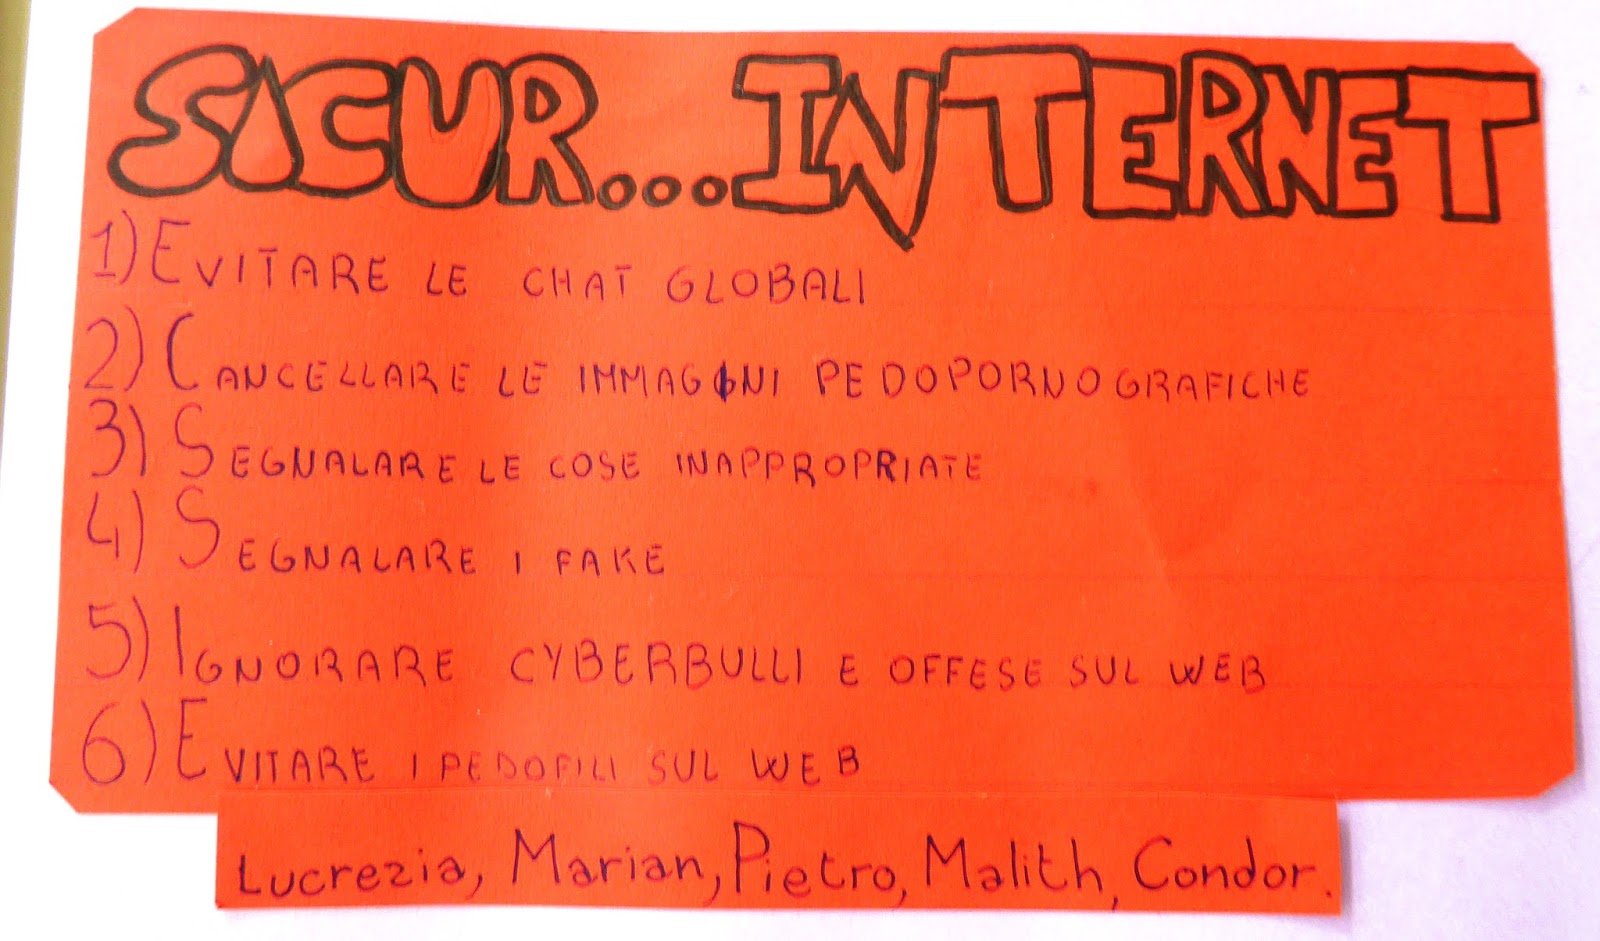 SICUR...INTERNET
1) EVITARE LE CHAT GLOBALI
2) CANCELLARE LE IMMAGINI PEDOPORNOGRAFICHE
3) SEGNALARE LE COSE INAPPROPRIATE
4) SEGNALARE I FAKE
5) IGNORARE CYBERBULLI E OFFESE SUL WEB
6) EVITARE I PEDOFILI SUL WEB
Lucrezia, Marian, Pietro, Malith, Condor.